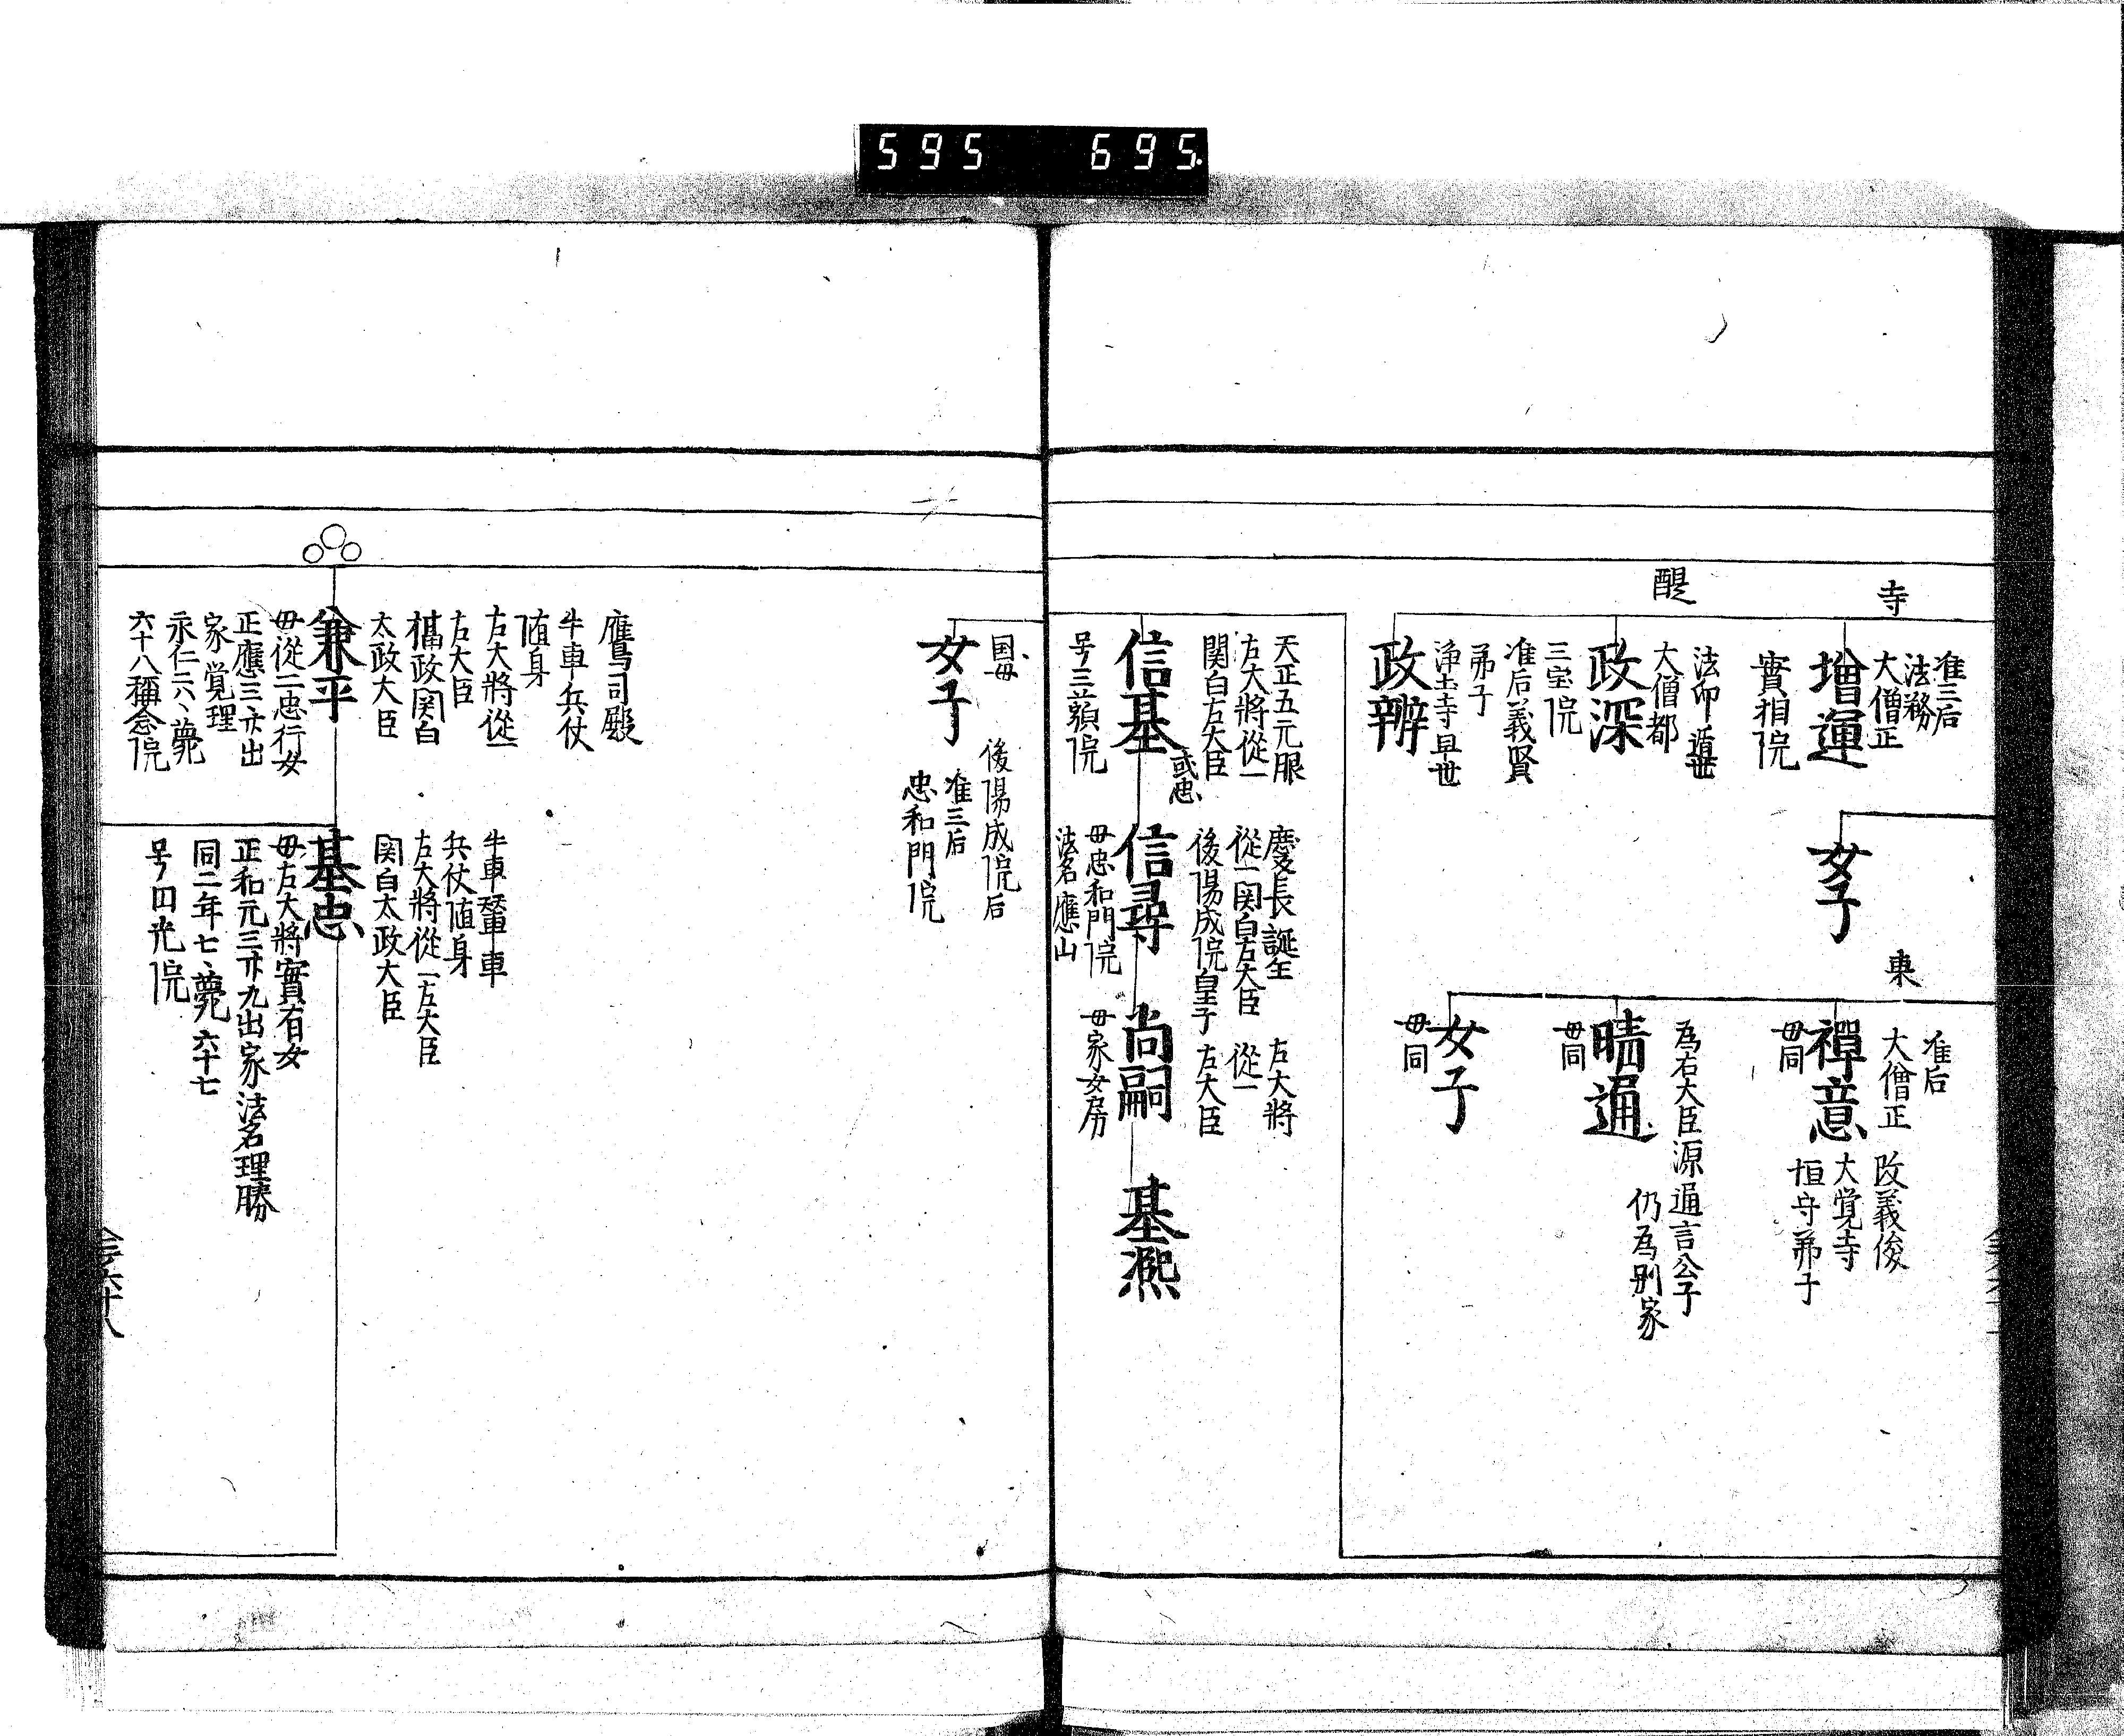 595 695.
寺
准三后
法務
大僧正
増運
實相院
醍
法印 遁世
大僧都
政深
三宝院
准后義賢
弟子
浄土寺早世
政辨
女子
東
准后
大僧正
改義俊
禪意
大覚寺
恒守弟子
毋同
為右大臣源通言公子
仍為別家
晴通
毋同
女子
毋同
天正五元服
左大將從一
関白左大臣
信基
或忠
号三藐院
慶長誕生
從一関白左大臣
後陽成院皇子
信尋
毋忠和門院
法名應山
左大將
從一
左大臣
尚嗣
毋家女房
基凞
国母
後陽成院后
女子
准三后
忠和門院
鷹司殿
牛車兵仗
随身
左大將從一
左大臣
攝政関白
太政大臣
兼平
毋從二忠行女
正應三
出
家覚理
永仁二八、薨
六十八稱念院
牛車輦車
兵仗随身
左大將從一左大臣
関白太政大臣
基忠
毋左大將實有女
正和元三廿九出家法名理勝
同二年七、薨六十七
号円光院
六十八